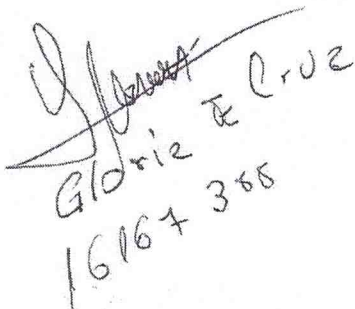 Gloria E Cruz
16167 388